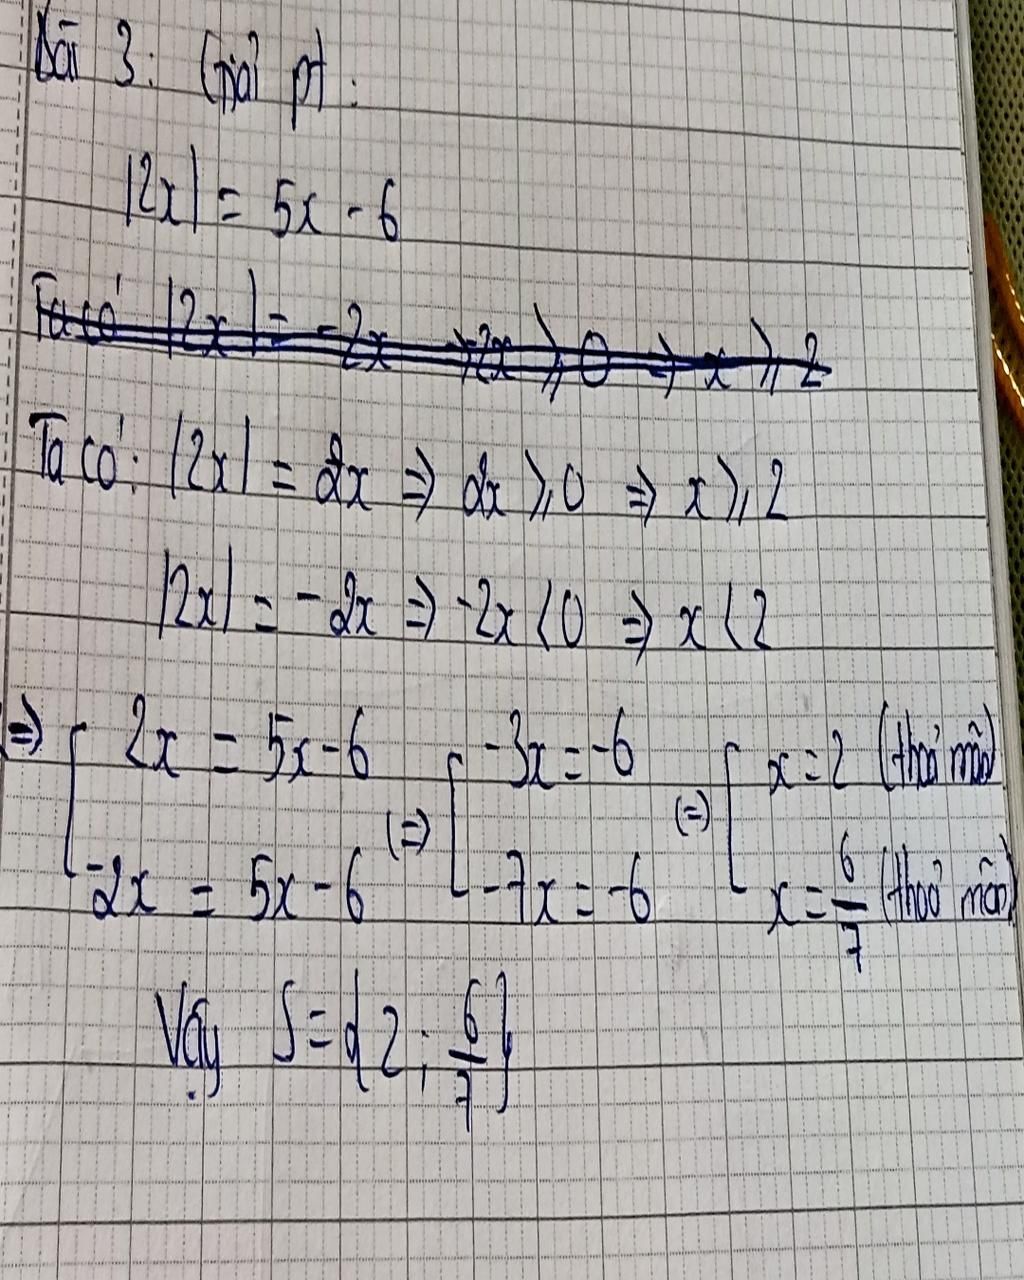 Bài 3: Giải pt:
|2x| = 5x - 6
Ta có |2x| = -2x => -2x ⩾ 0 => x ⩾ 2
Ta có: |2x| = 2x => 2x ⩾ 0 => x ⩾ 2
|2x| = -2x => -2x < 0 => x < 2
=> [ 2x = 5x - 6 (=) [ -3x = -6 (=) [ x = 2 (thoả mãn)
-2x = 5x - 6 -7x = -6 x = 6/7 (thoả mãn)
Vậy S = {2; 6/7}